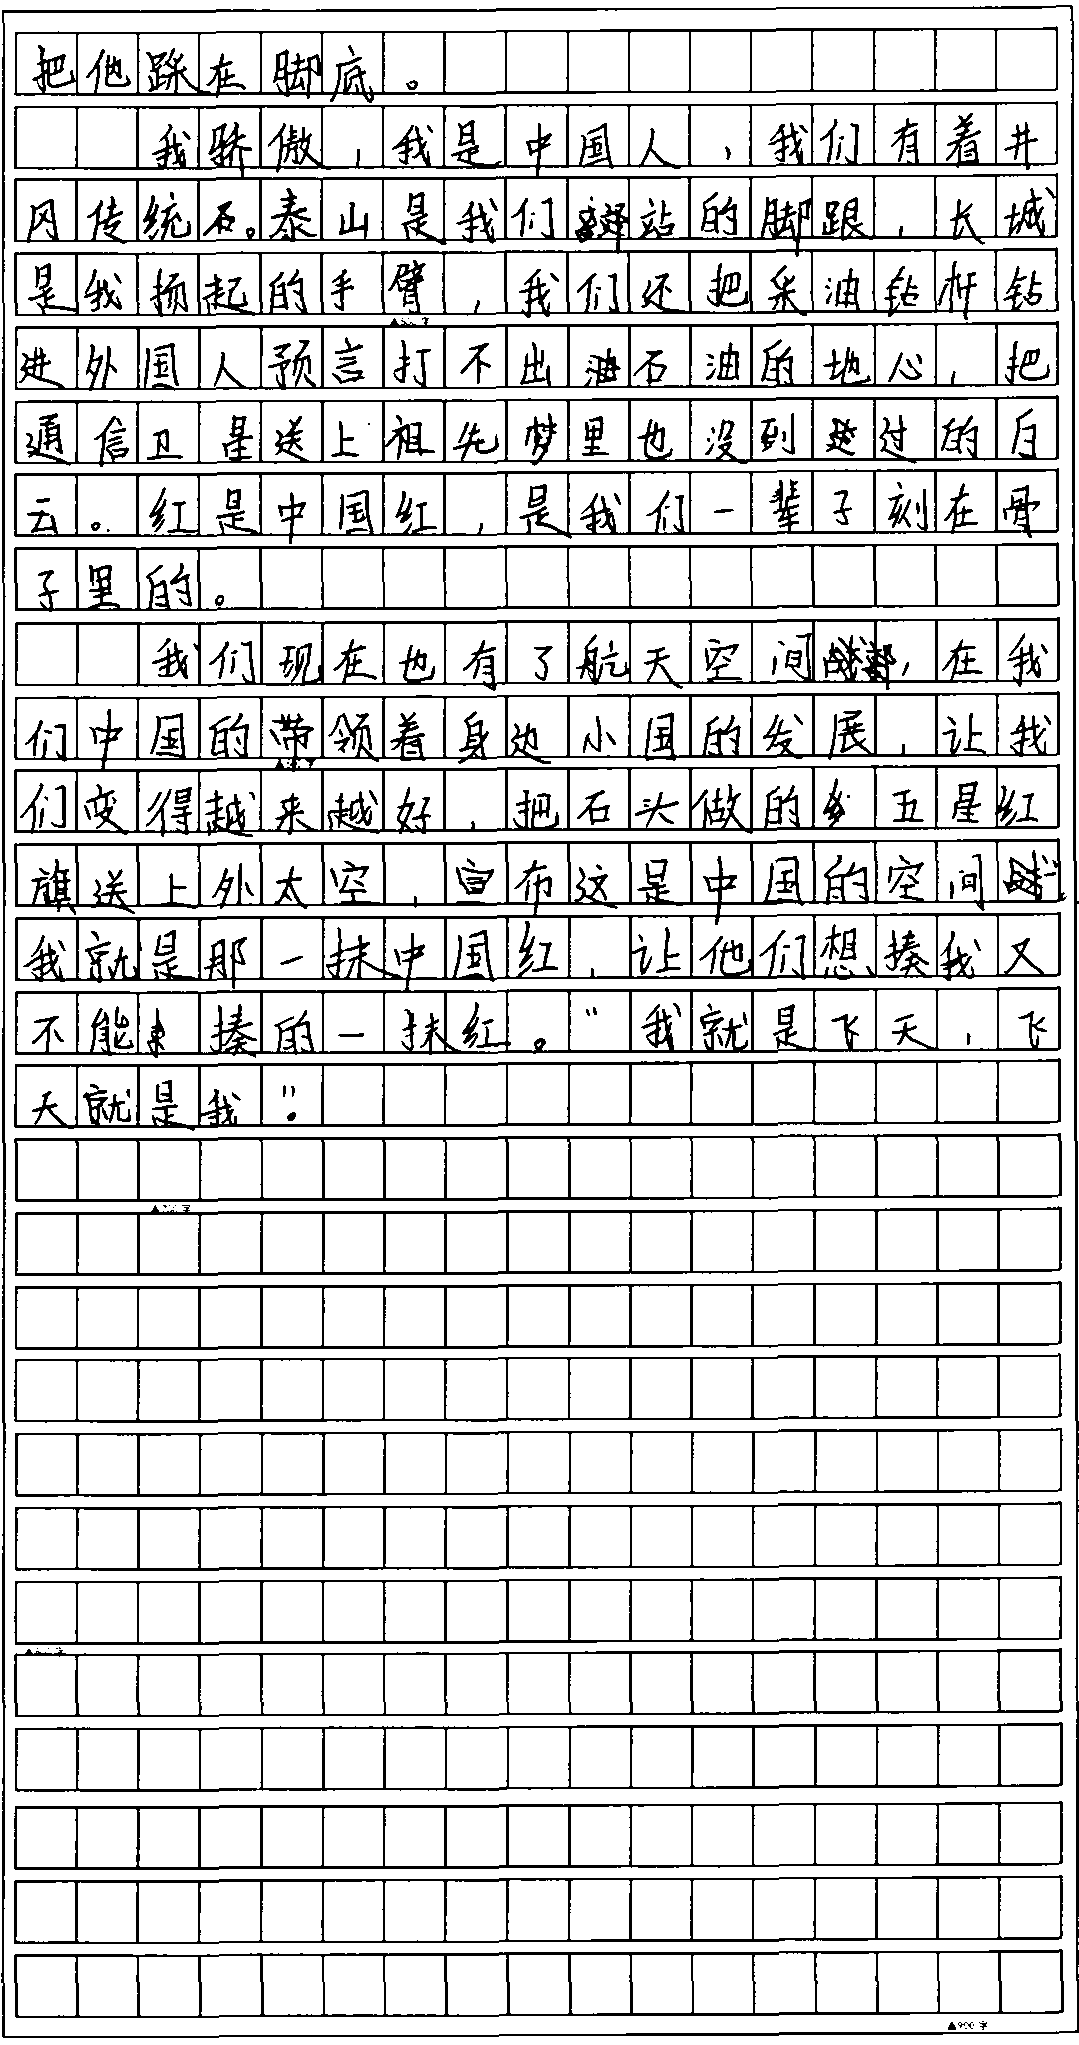 把他踩在脚底。
我骄傲，我是中国人，我们有着井
冈传统石。泰山是我们站的脚跟，长城
是我扬起的手臂，我们还把采油钻杆钻
进外国人预言打不出石油的地心，把
通信卫星送上祖先梦里也没到达过的白
云。红是中国红，是我们一辈子刻在骨
子里的。
我们现在也有了航天空间，在我
们中国的带领着身边小国的发展，让我
们变得越来越好，把石头做的五星红
旗送上外太空，宣布这是中国的空间
我就是那一抹中国红，让他们想揍我又
不能揍的一抹红。“我就是飞天，飞
天就是我”。
▲900字